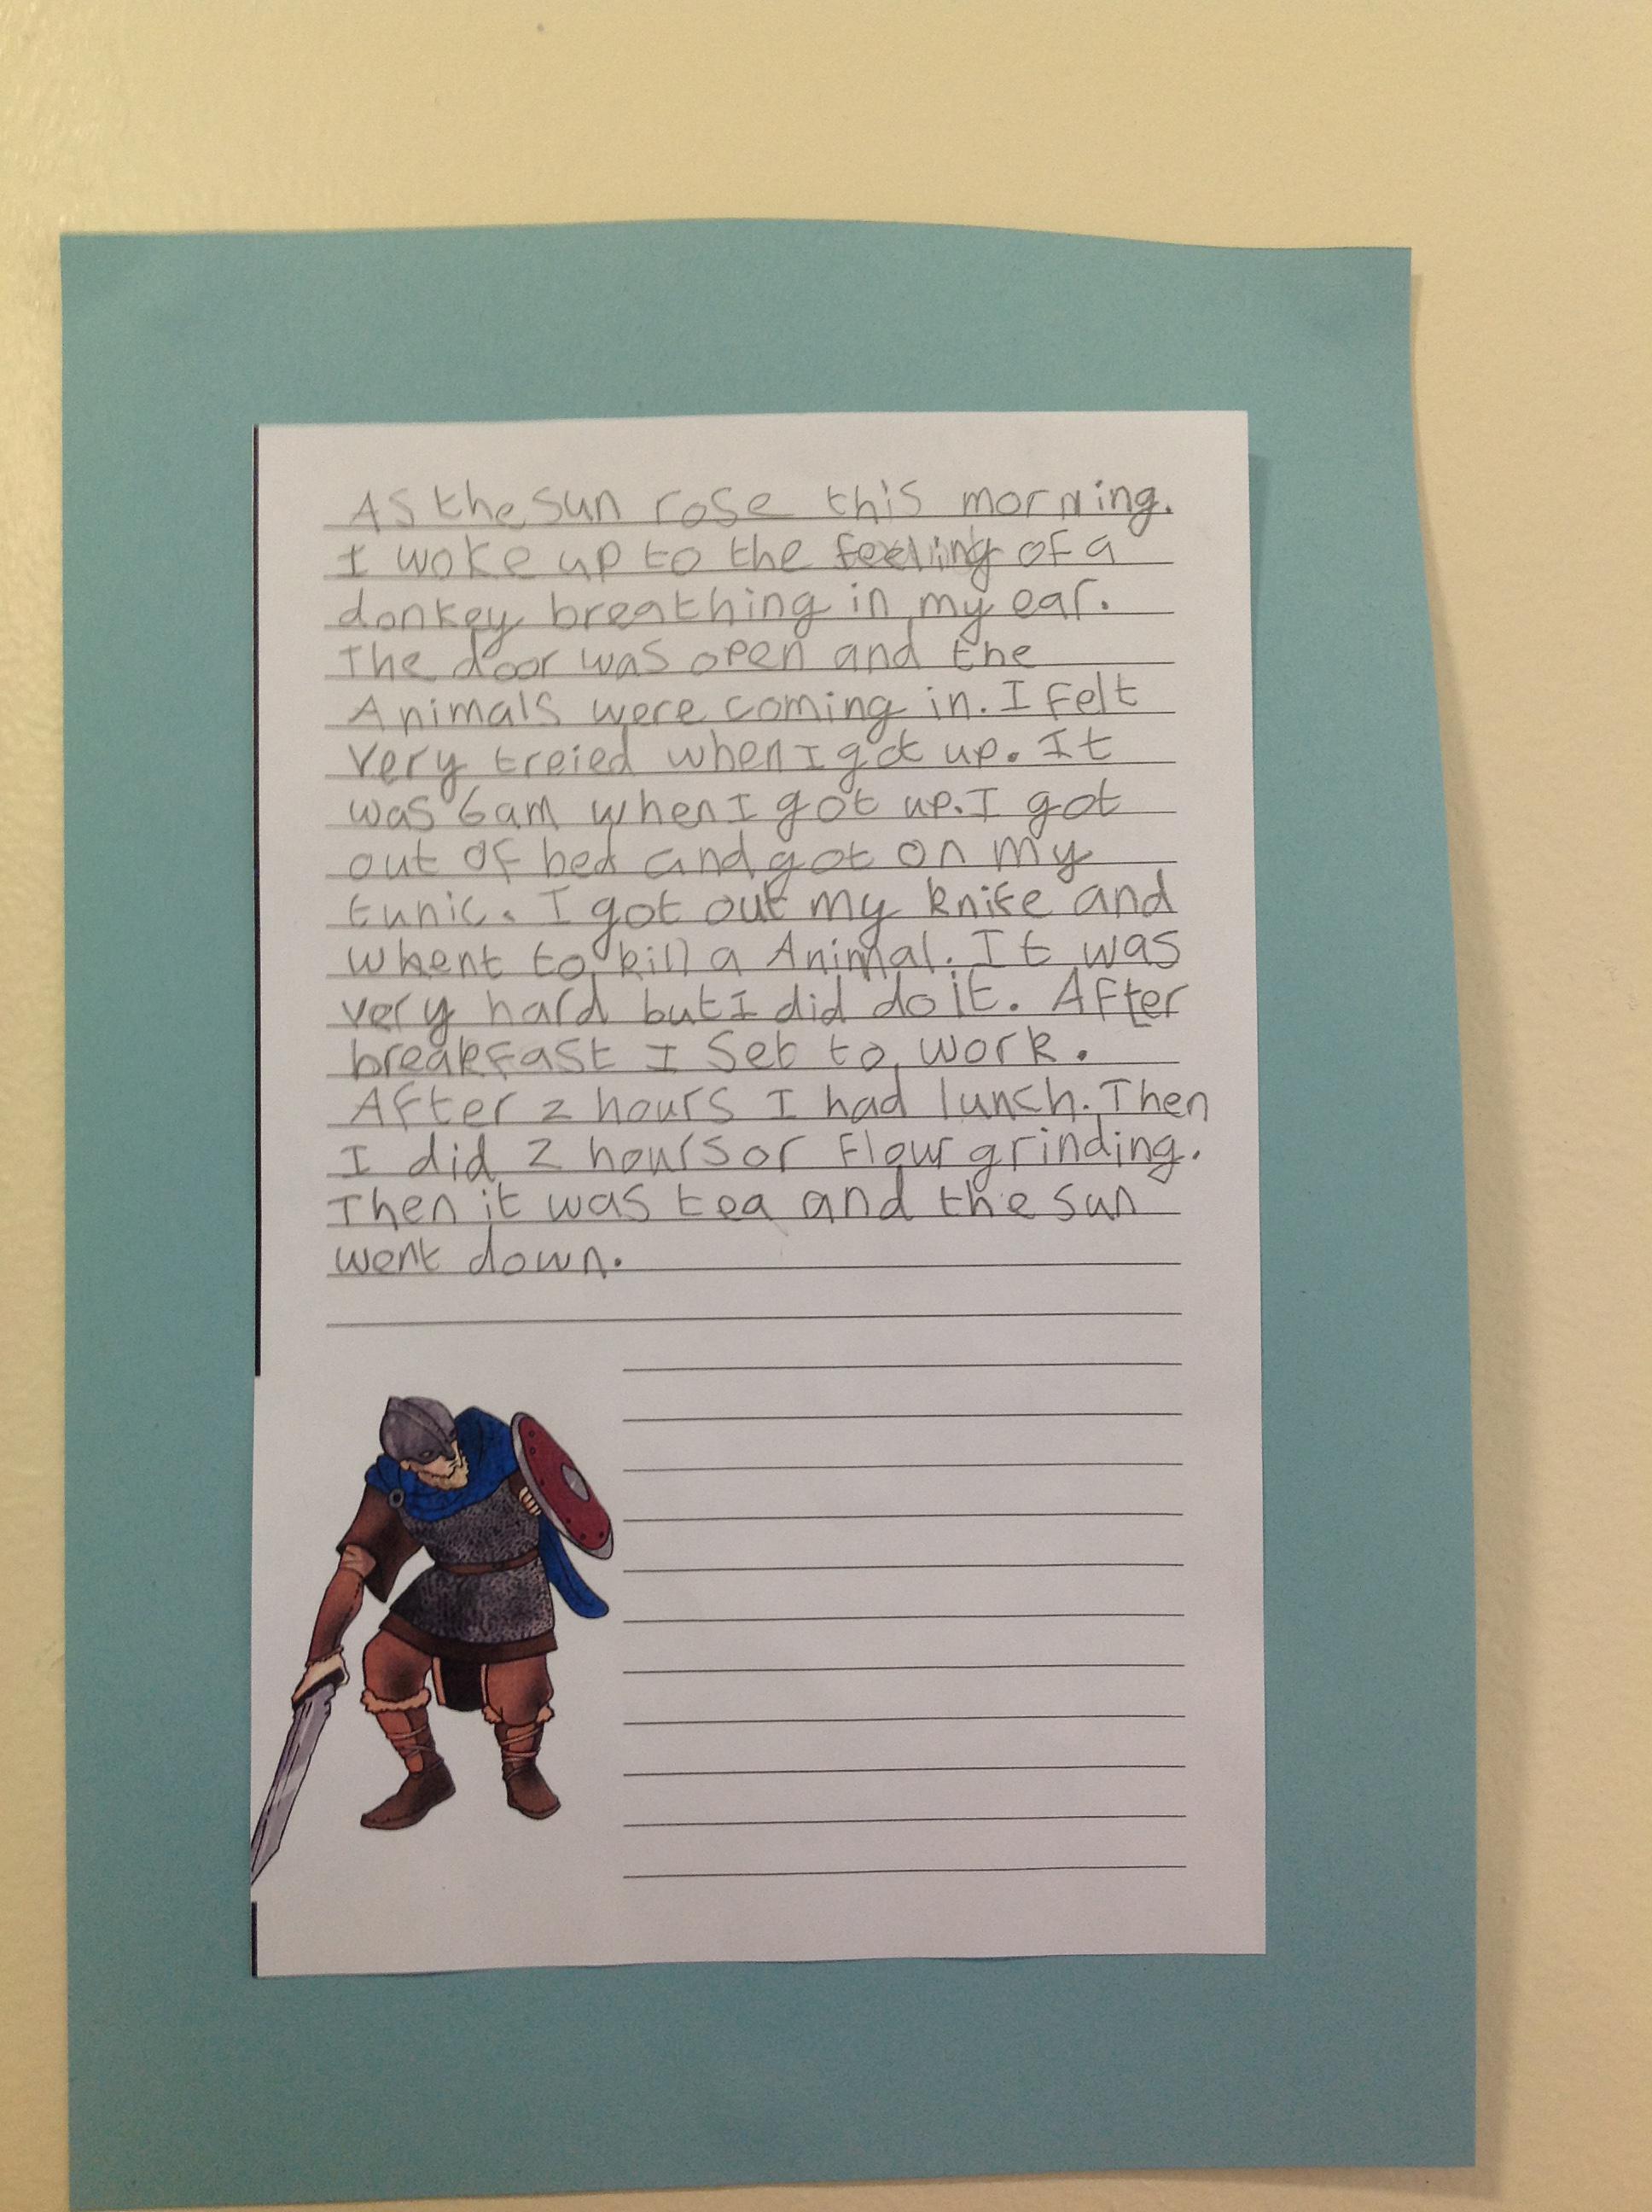 As the sun rose this morning.
I woke up to the feeling of a
donkey breathing in my ear.
The door was open and the
Animals were coming in. I felt
very treied when I got up. It
was 6am when I got up. I got
out of bed and got on my
tunic. I got out my knife and
whent to kill a Animal. It was
very hard but I did do it. After
breakfast I set to work.
After 2 hours I had lunch. Then
I did 2 hours of flour grinding.
Then it was tea and the sun
went down.